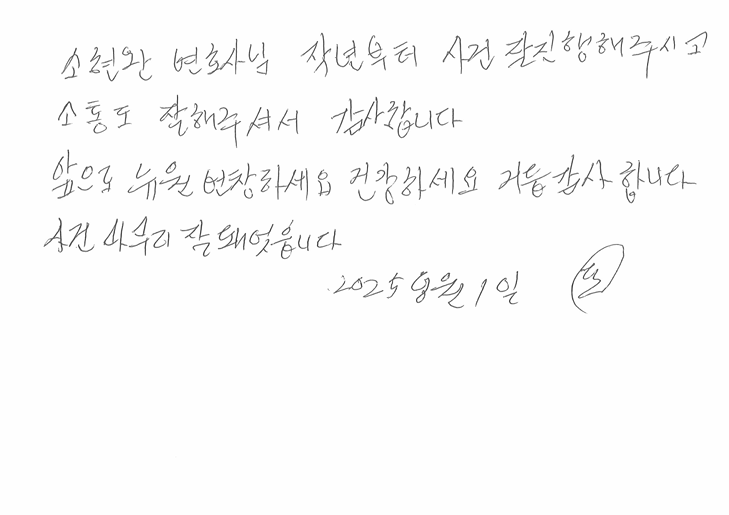 소현완 변호사님 작년부터 사건 잘진행해주시고
소통도 잘해주셔서 감사합니다
앞으로 뉴원 번창하세요 건강하세요 거듭감사합니다
사건 마무리 잘돼엇읍니다
2025 월 1일